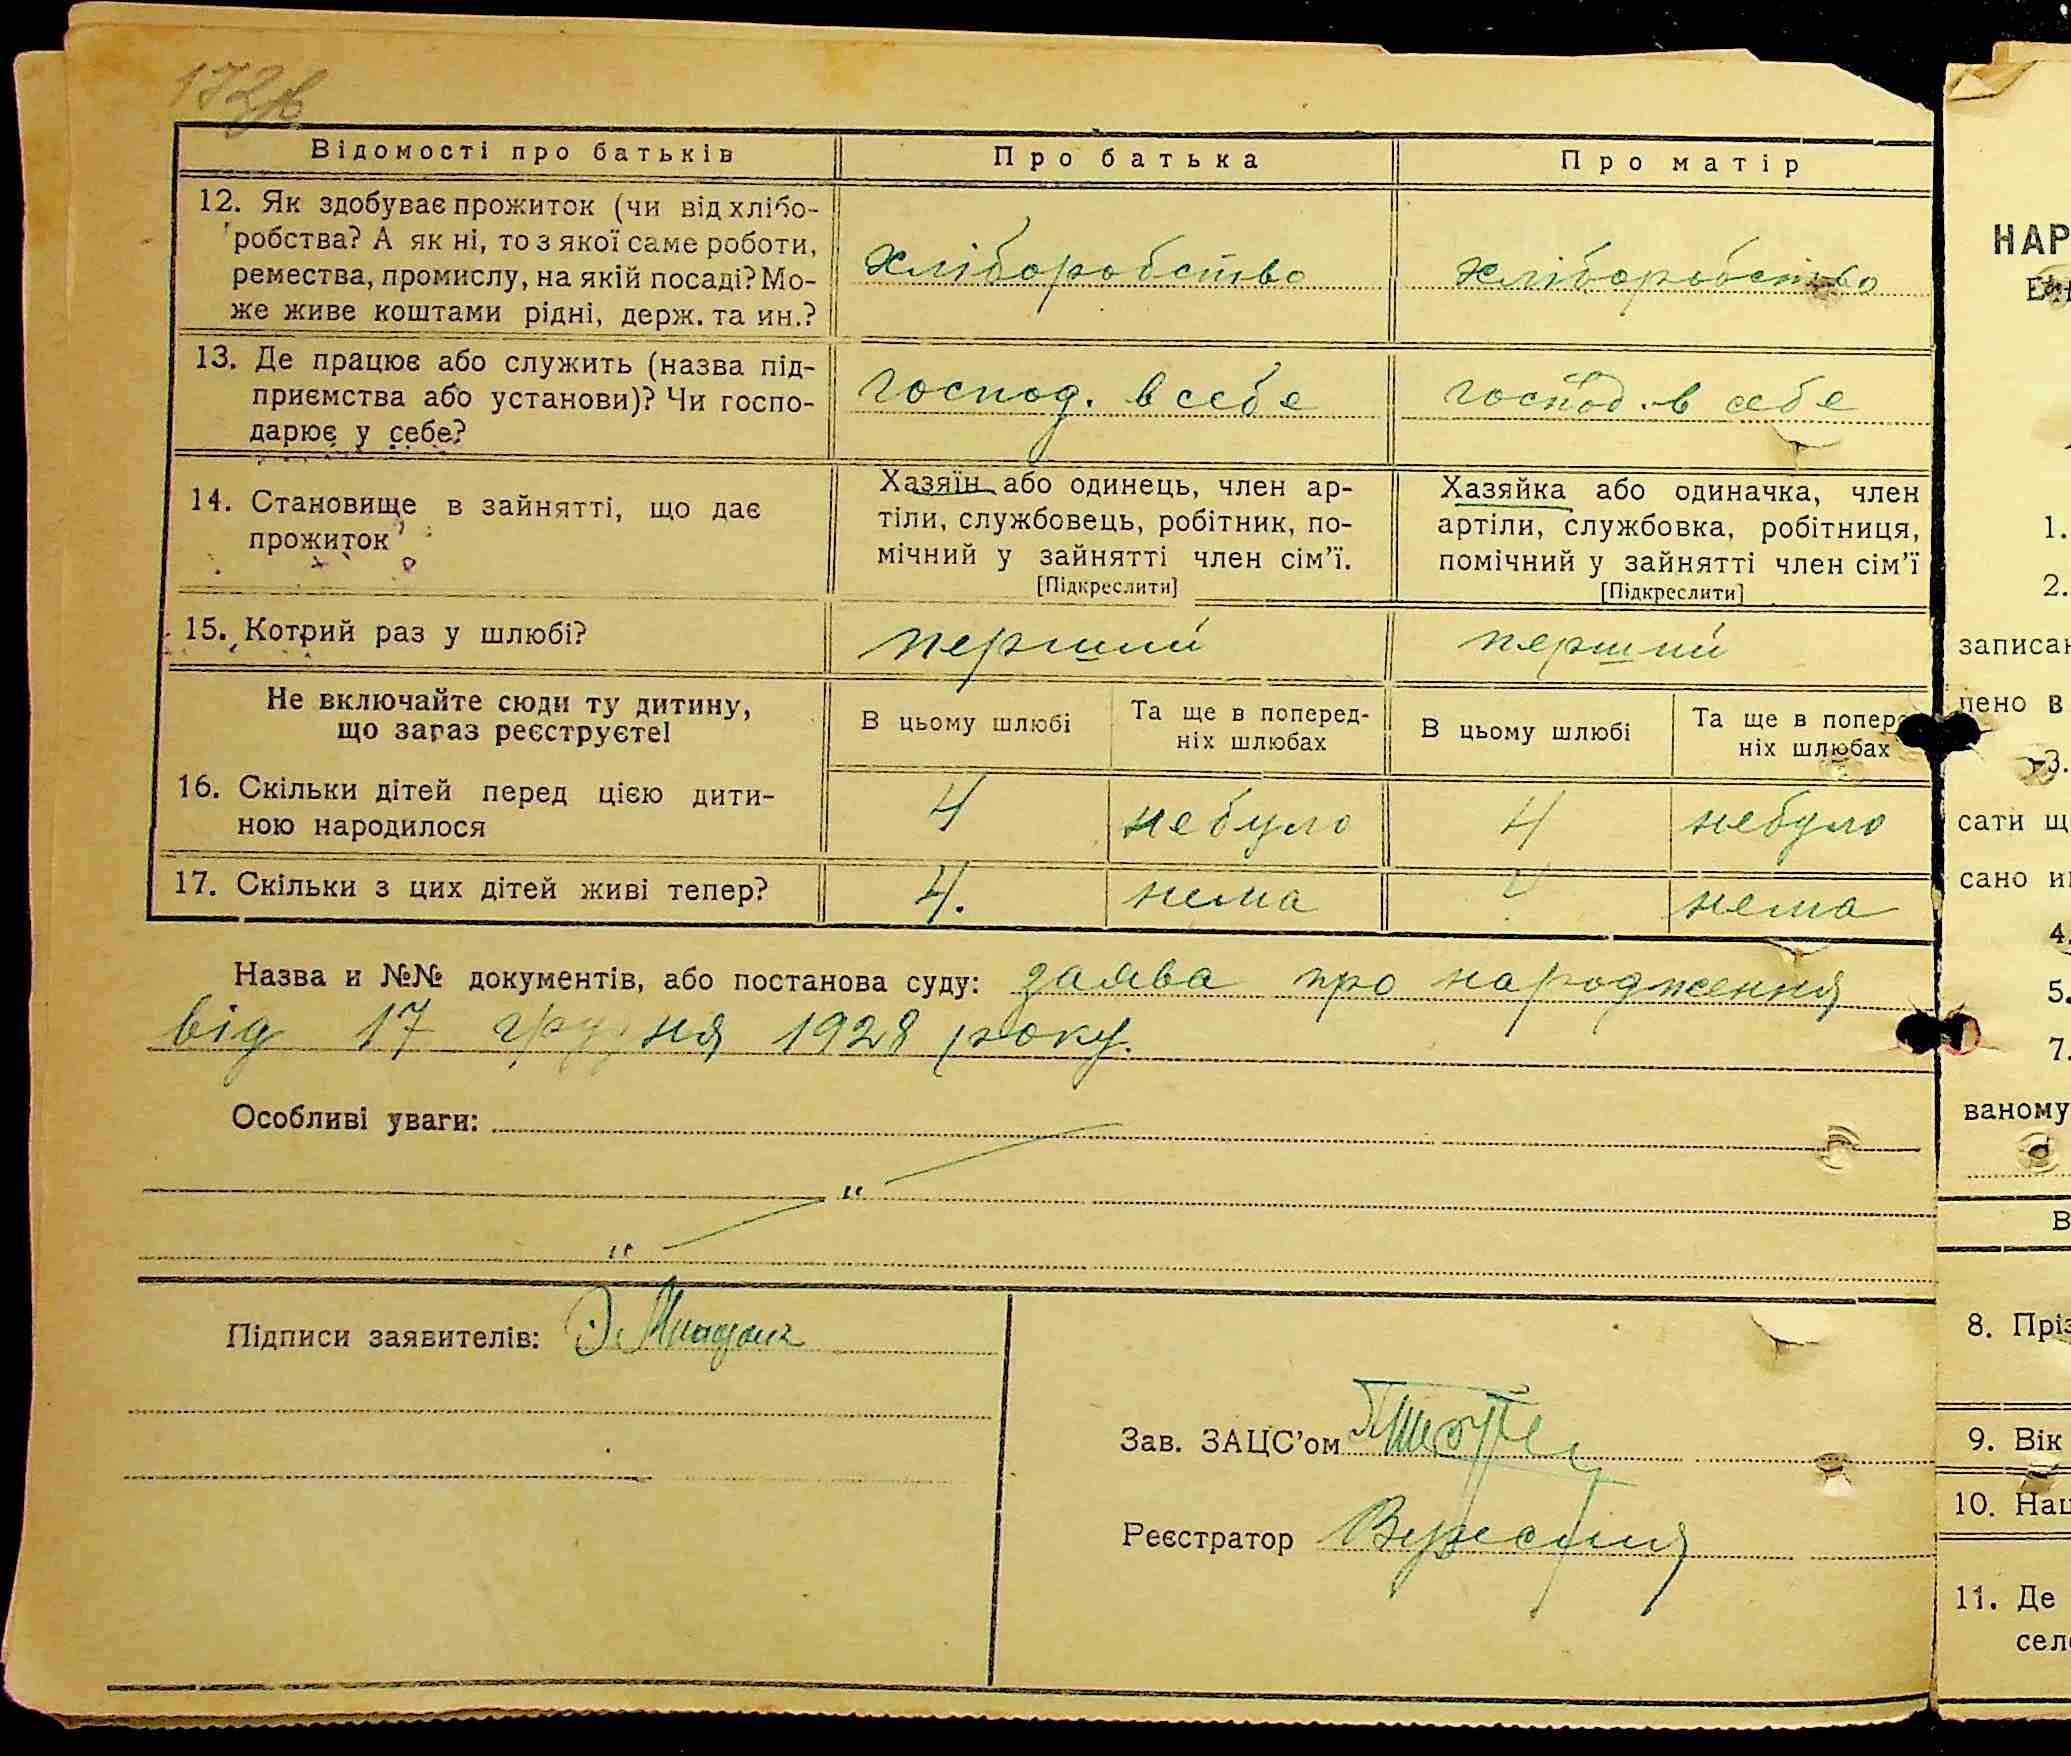 Відомості про батьків Про батька Про матір
12. Як здобуває прожиток (чи від хлібо-
робства? А як ні, то з якої саме роботи,
ремества, промислу, на якій посаді? Мо-
же живе коштами рідні, держ. та ин.?
хліборобство хліборобство
13. Де працює або служить (назва під-
приємства або установи)? Чи госпо-
дарює у себе?
господ. в себе господ. в себе
14. Становище в зайнятті, що дає
прожиток
Хазяїн або одинець, член ар-
тіли, службовець, робітник, по-
мічний у зайнятті член сім'ї.
[Підкреслити]
Хазяйка або одиначка, член
артіли, службовка, робітниця,
помічний у зайнятті член сім'ї
[Підкреслити]
15. Котрий раз у шлюбі? перший перший
Не включайте сюди ту дитину,
що зараз реєструєте!
В цьому шлюбі
Та ще в поперед-
ніх шлюбах
В цьому шлюбі
Та ще в попере
ніх шлюбах
16. Скільки дітей перед цією дити-
ною народилося
4 небуло 4 небуло
17. Скільки з цих дітей живі тепер? 4. нема нема
Назва и №№ документів, або постанова суду: заява про народження
від 17 грудня 1928 року.
Особливі уваги:
"
"
Підписи заявителів:
Зав. ЗАЦС'ом
Реєстратор
НАР
1.
2.
записан
пено в
3.
сати щ
сано и
4.
5.
7.
ваному
В
8. Пріз
9. Вік
10. Нац
11. Де
село